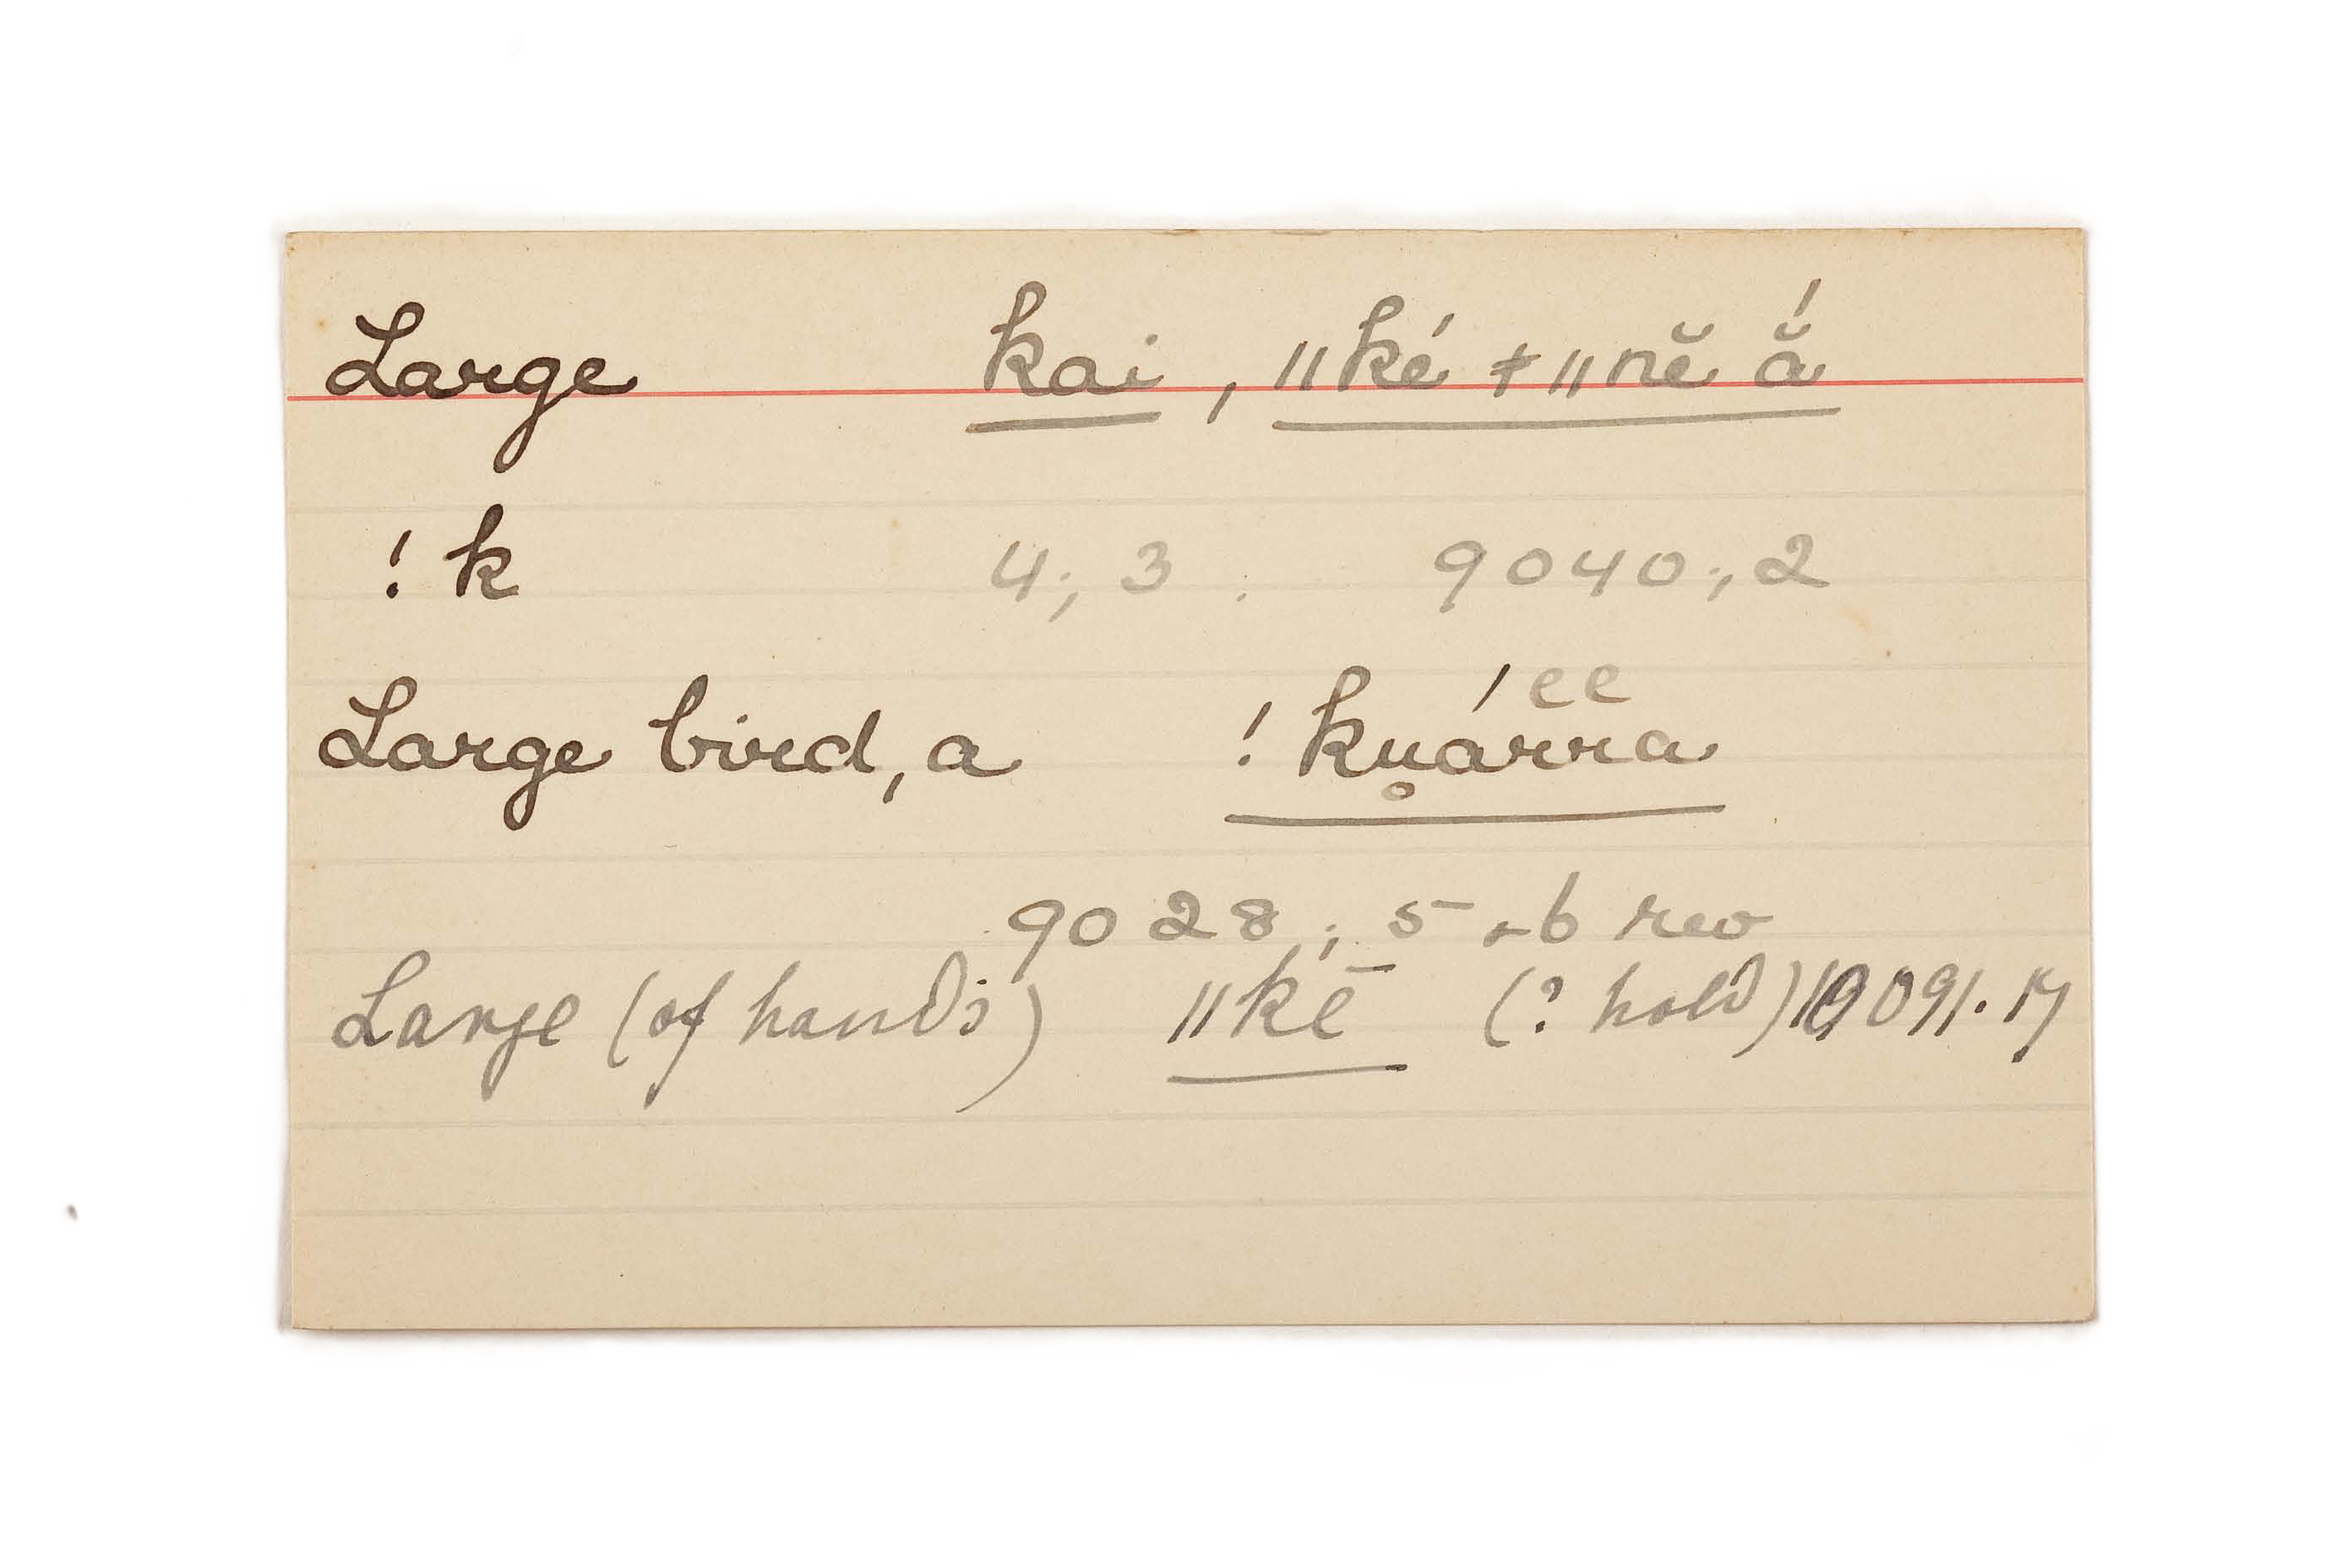 Large kai , ǁké ǂǁnĕ ắ
! k 4; 3. 9040; 2
ee
Large bird, a ! ku̥árra
9028; 5 + 6 rev
Large (of hands) ǁkḗ (? hold) 19091. 17